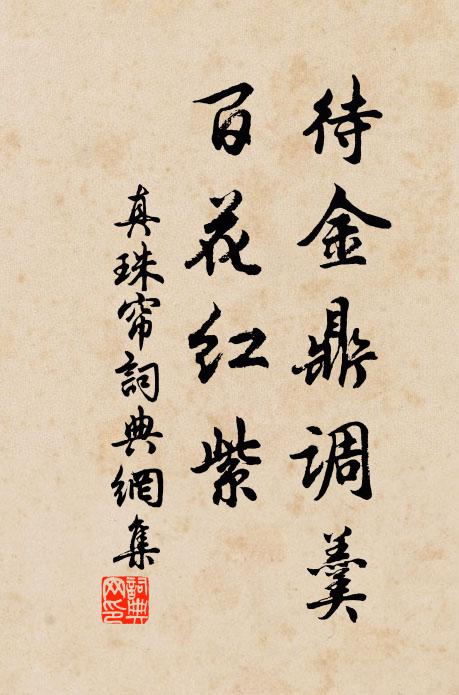 待金鼎调羹
百花红紫
真珠帘詞典網集
詞典网印